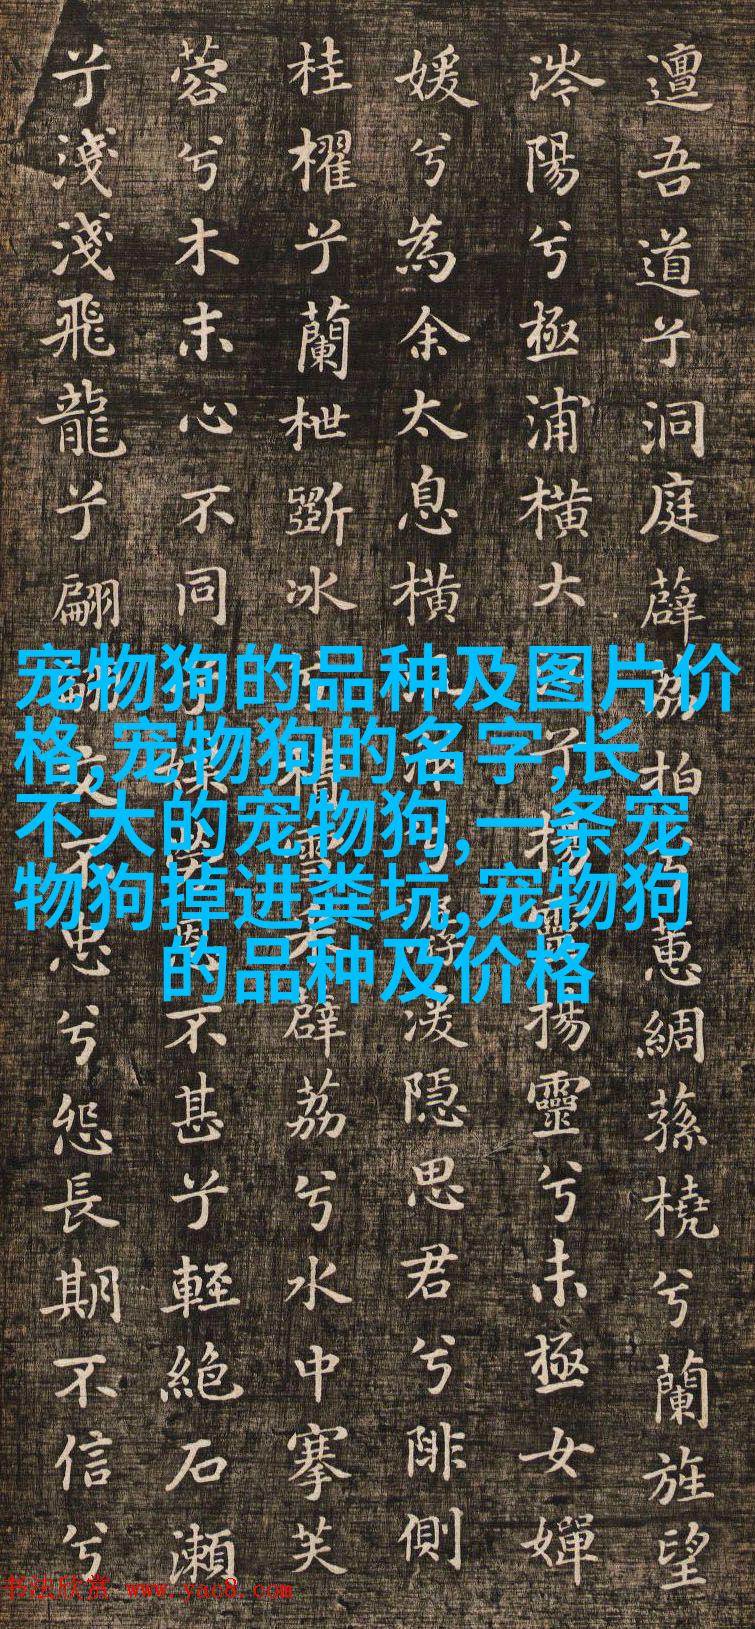 邅吾道兮洞庭薜荔柏兮蕙綢蓀橈兮蘭旌望
涔陽兮極浦橫大江兮揚靈揚靈兮未極女嬋
媛兮為余太息橫流涕兮潺湲隱思君兮陫側
桂櫂兮蘭枻斲冰兮積雪采薜荔兮水中搴芙
蓉兮木末心不同兮媒勞恩不甚兮輕絕石瀨
兮淺淺飛龍兮翩翩交不忠兮怨長期不信兮
宠物狗的品种及图片价
格,宠物狗的名字,长
不大的宠物狗,一条宠
物狗掉进粪坑,宠物狗
的品种及价格
书法欣赏 www.yac8.com